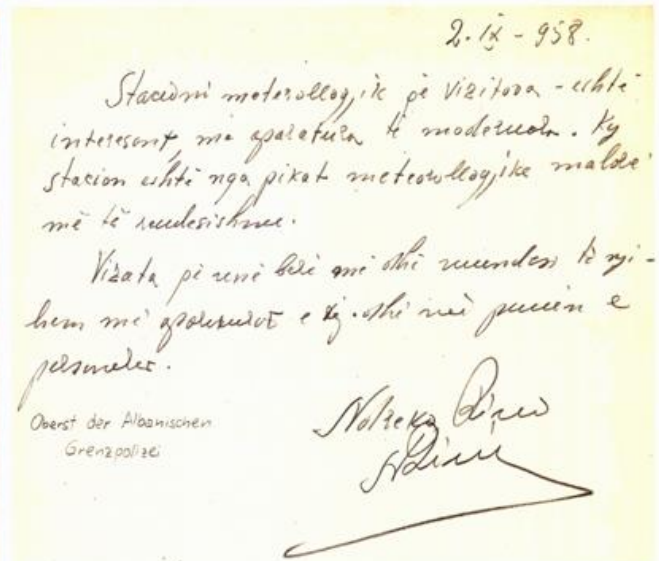 2.IX - 958.
Stacioni meterollogjik që vizitova - është
interesant, me aparatura të moderuara. Ky
stacion është nga pikat meteorollogjike malore
më të rendësishme.
Vizata që unë bëra më dha mundësi të nji-
hem me aparaturat e tij. dhe me punën e
personelit.
Oberst der Albanischen
Grenzpolizei